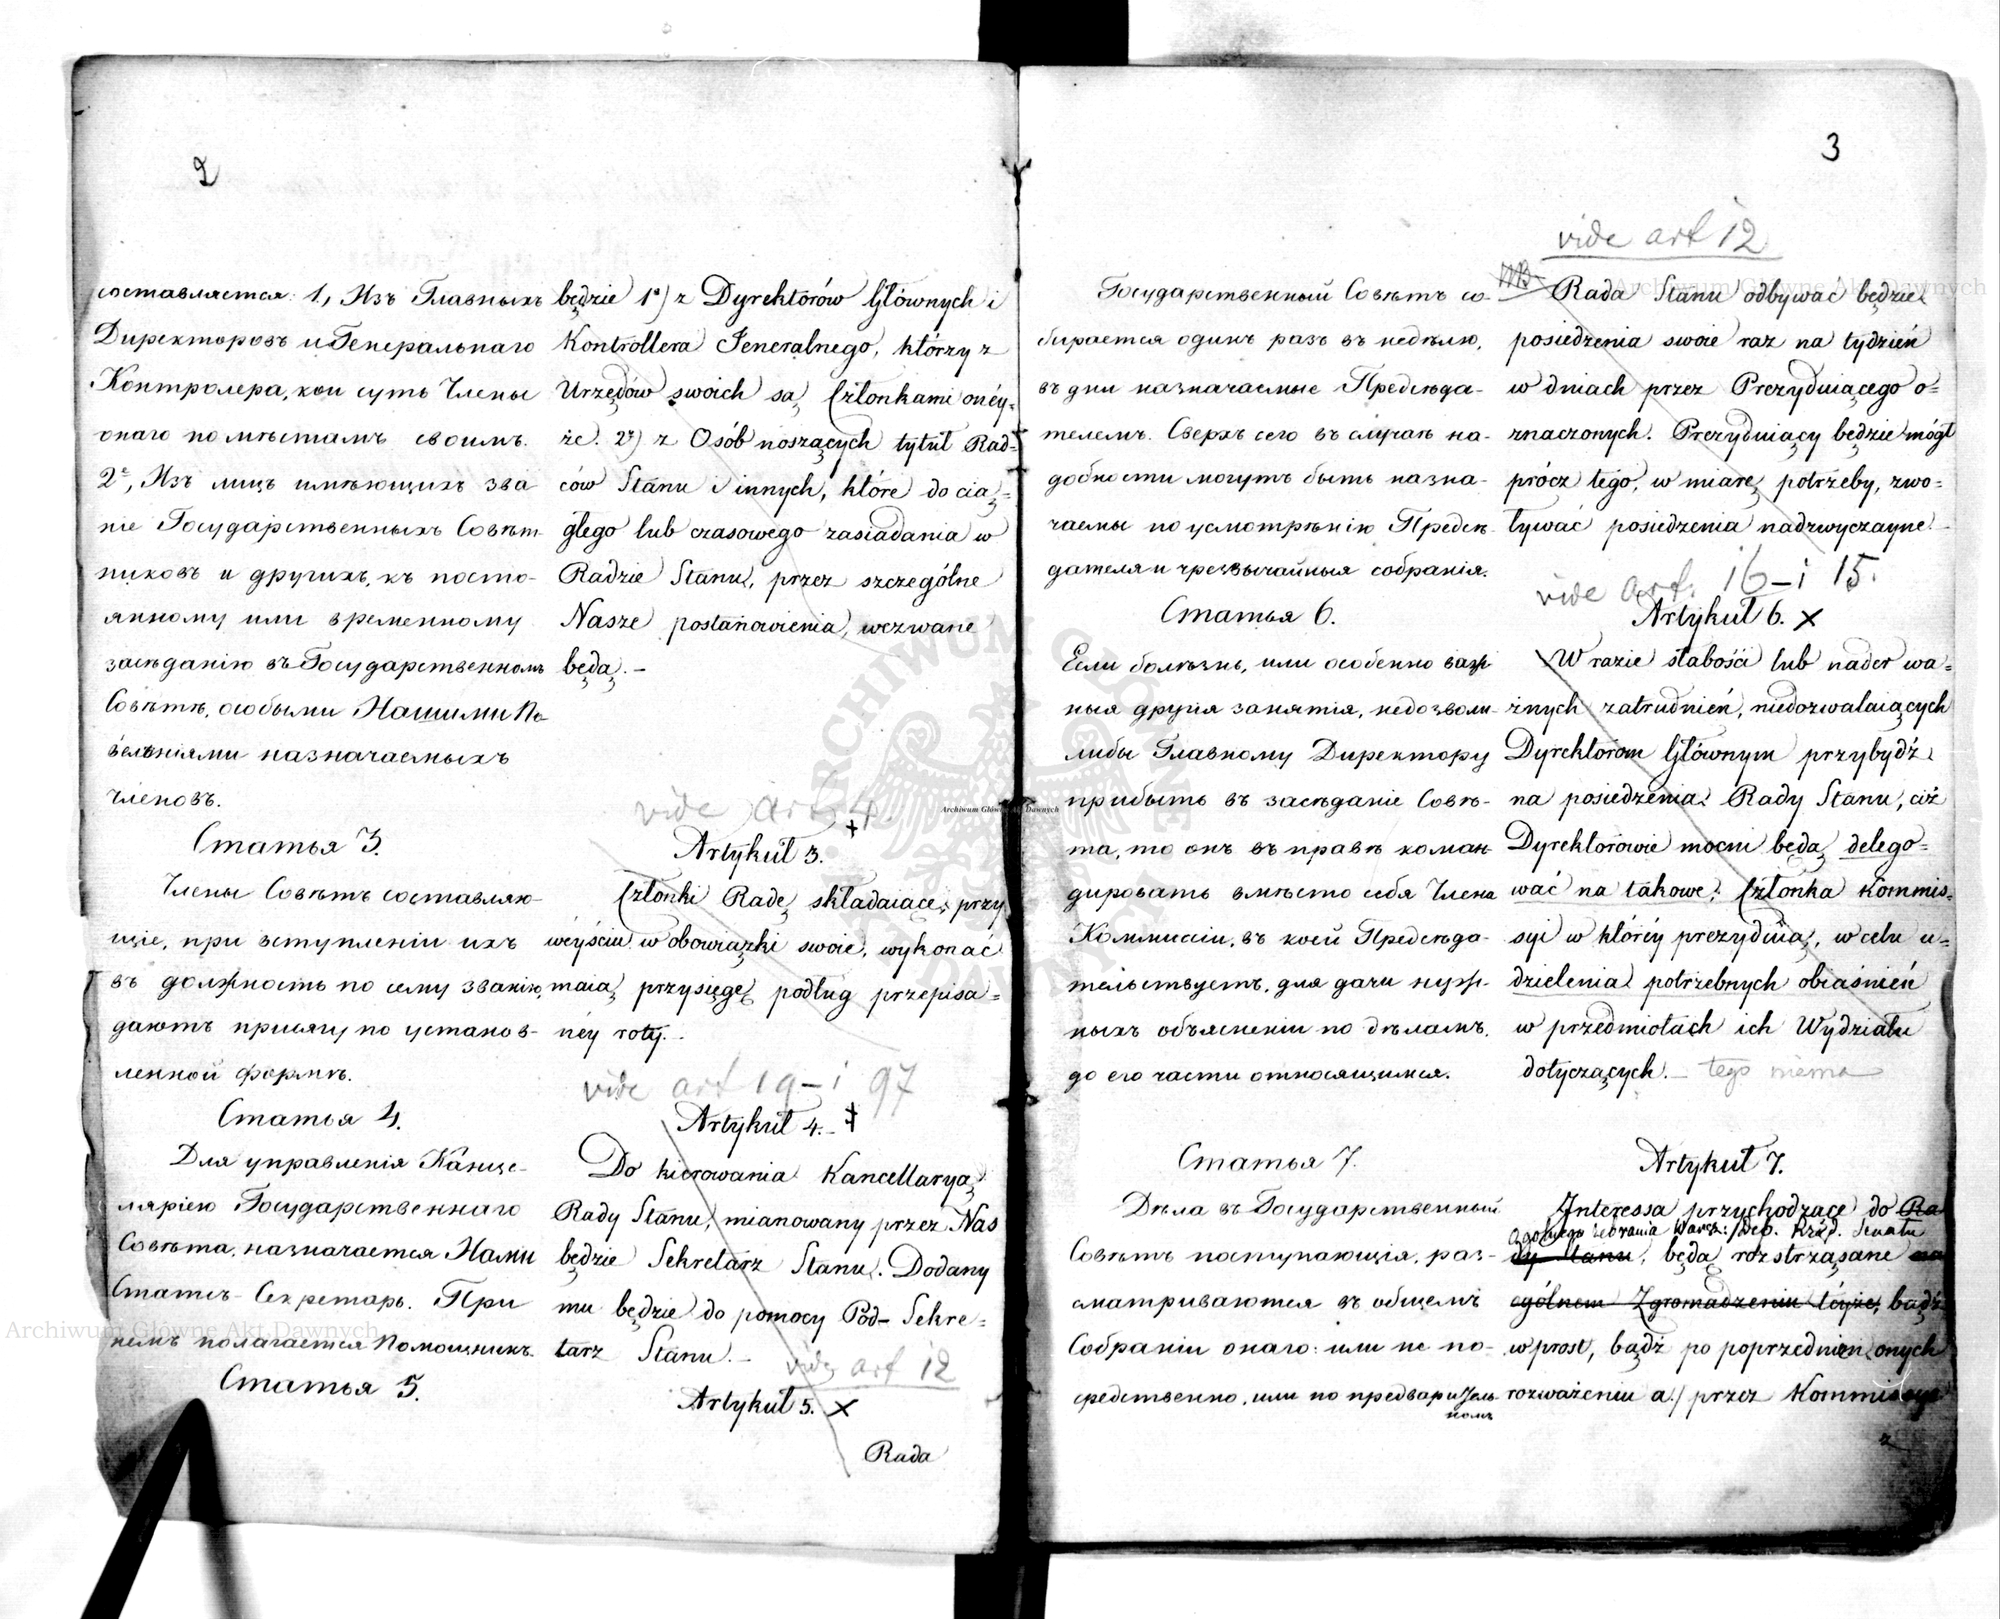 2
составляется: 1, Изъ Главныхъ
Директоровъ и Генеральнаго
Контролера, кои суть Члены
онаго по мѣстамъ своимъ.
2е, Изъ лицъ имѣющихъ зва
ніе Государственныхъ Совѣт
никовъ и другихъ, къ посто-
янному или временному
засѣданію въ Государственномъ
Совѣтѣ, особыми Нашими По
велѣніями назначаемыхъ
Членовъ.
Статья 3.
Члены Совѣтъ составляю-
щіе, при вступленіи ихъ
въ должность по сему званію,
даютъ присягу по установ-
ленной формѣ.
Статья 4.
Для управленія Канце-
ляріею Государственнаго
Совѣта, назначается Нами
Статсъ-Секретарь. При
немъ полагается Помощникъ.
Статья 5.
będzie 1º) z Dyrektorów Głównych i
Kontrollera Jeneralnego, którzy z
Urzędów swoich są Członkami onéy-
że. 2º) z Osób noszących tytuł Rad-
ców Stanu i innych, które do cią-
głego lub czasowego zasiadania w
Radzie Stanu, przez szczególne
Nasze postanowienia, wezwane
będą.-
vide art. 4.
Artykuł 3.
Członki Radę składaiące, przy
weyściu w obowiązki swoie, wykonać
maią przysięgę podług przepisa-
néy roty.-
vide art 19-i 97
Artykuł 4.-
Do kierowania Kancellaryą
Rady Stanu, mianowany przez Nas
będzie Sekretarz Stanu. Dodany
mu będzie do pomocy Pod-Sekre-
tarz Stanu.-
vide art 12
Artykuł 5. X
Rada
3
vide art 12
Государственный Совѣтъ со-
бирается одинъ разъ въ недѣлю,
въ дни назначаемые Предсѣда-
телемъ. Сверхъ сего въ случаѣ на-
добности могутъ быть назна-
чаемы по усмотрѣнію Предсѣ
дателя и чрезвычайныя собранія.
Статья 6.
Если болѣзнь, или особенно важ-
ныя другія занятія, недозволи-
либы Главному Директору
прибыть въ засѣданіе Совѣ-
та, то онъ въ правѣ коман-
дировать вмѣсто себя Члена
Коммисіи, въ коей Предсѣда-
тельствуетъ, для дачи нуж-
ныхъ объясненій по дѣламъ,
до его части относящимся.
Статья 7.
Дѣла въ Государственный
Совѣтъ поступающія, раз-
сматриваются въ общемъ
Собраніи онаго: или не по-
средственно, или по предваритель
номъ
NB.
Rada Stanu odbywać będzie
posiedzenia swoie raz na tydzień
w dniach przez Prezyduiącego o-
znaczonych. Prezyduiący będzie mógł
prócz tego, w miarę potrzeby, zwo-
ływać posiedzenia nadzwyczayne.-
vide art. 16-i 15.
Artykuł 6. X
W razie słabości lub nader wa-
żnych zatrudnień, niedozwalaiących
Dyrektorom Głównym przybydź
na posiedzenia Rady Stanu, ciż
Dyrektorowie mocni będą delego-
wać na takowe, Członka Kommis-
syi w któréy prezyduią, w celu u-
dzielenia potrzebnych obiaśnień
w przedmiotach ich Wydziału
dotyczących.- tego niema
Artykuł 7.
Interessa przychodzące do Ra
Ogólnego zebrania Warsz: Dep. Rząd. Senatu
dy Stanu, będą rozstrząsane na
ogólnem Zgromadzeniu téyże, bądź
wprost, bądź po poprzedniem onych
rozważeniu a.) przez Kommissye
z
Archiwum Główne Akt Dawnych
Archiwum Główne Akt Dawnych
Archiwum Główne Akt Dawnych
ARCHIWUM GŁÓWNE AKT DAWNYCH